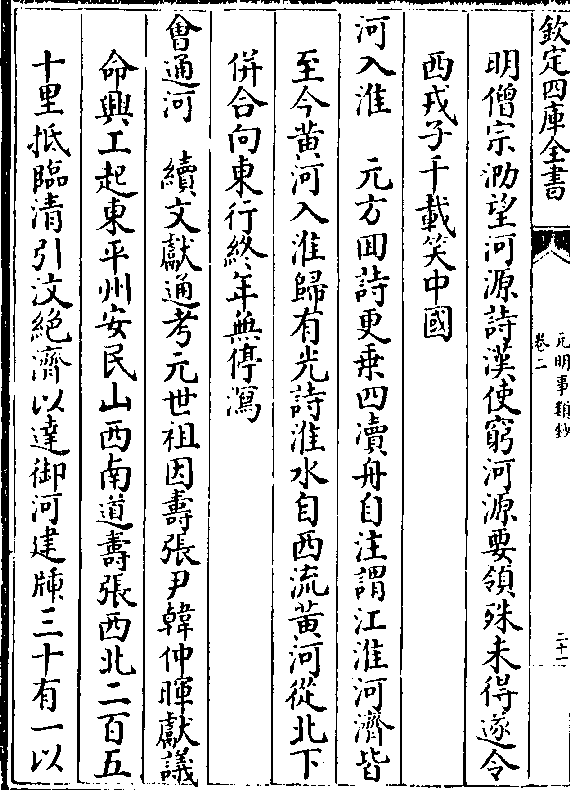 欽定四庫全書
元明事類鈔
卷二
二十一
明僧宗泐望河源詩漢使窮河源要領殊未得遂令
西戎子千載笑中國
河入淮　元方回詩更乗四凟舟自注謂江淮河濟皆
至今黄河入淮歸有光詩淮水自西流黄河從北下
併合向東行終年無停瀉
會通河　續文獻通考元世祖因壽張尹韓仲暉獻議
命興工起東平州安民山西南道壽張西北二百五
十里抵臨清引汶絶濟以達御河建牐三十有一以